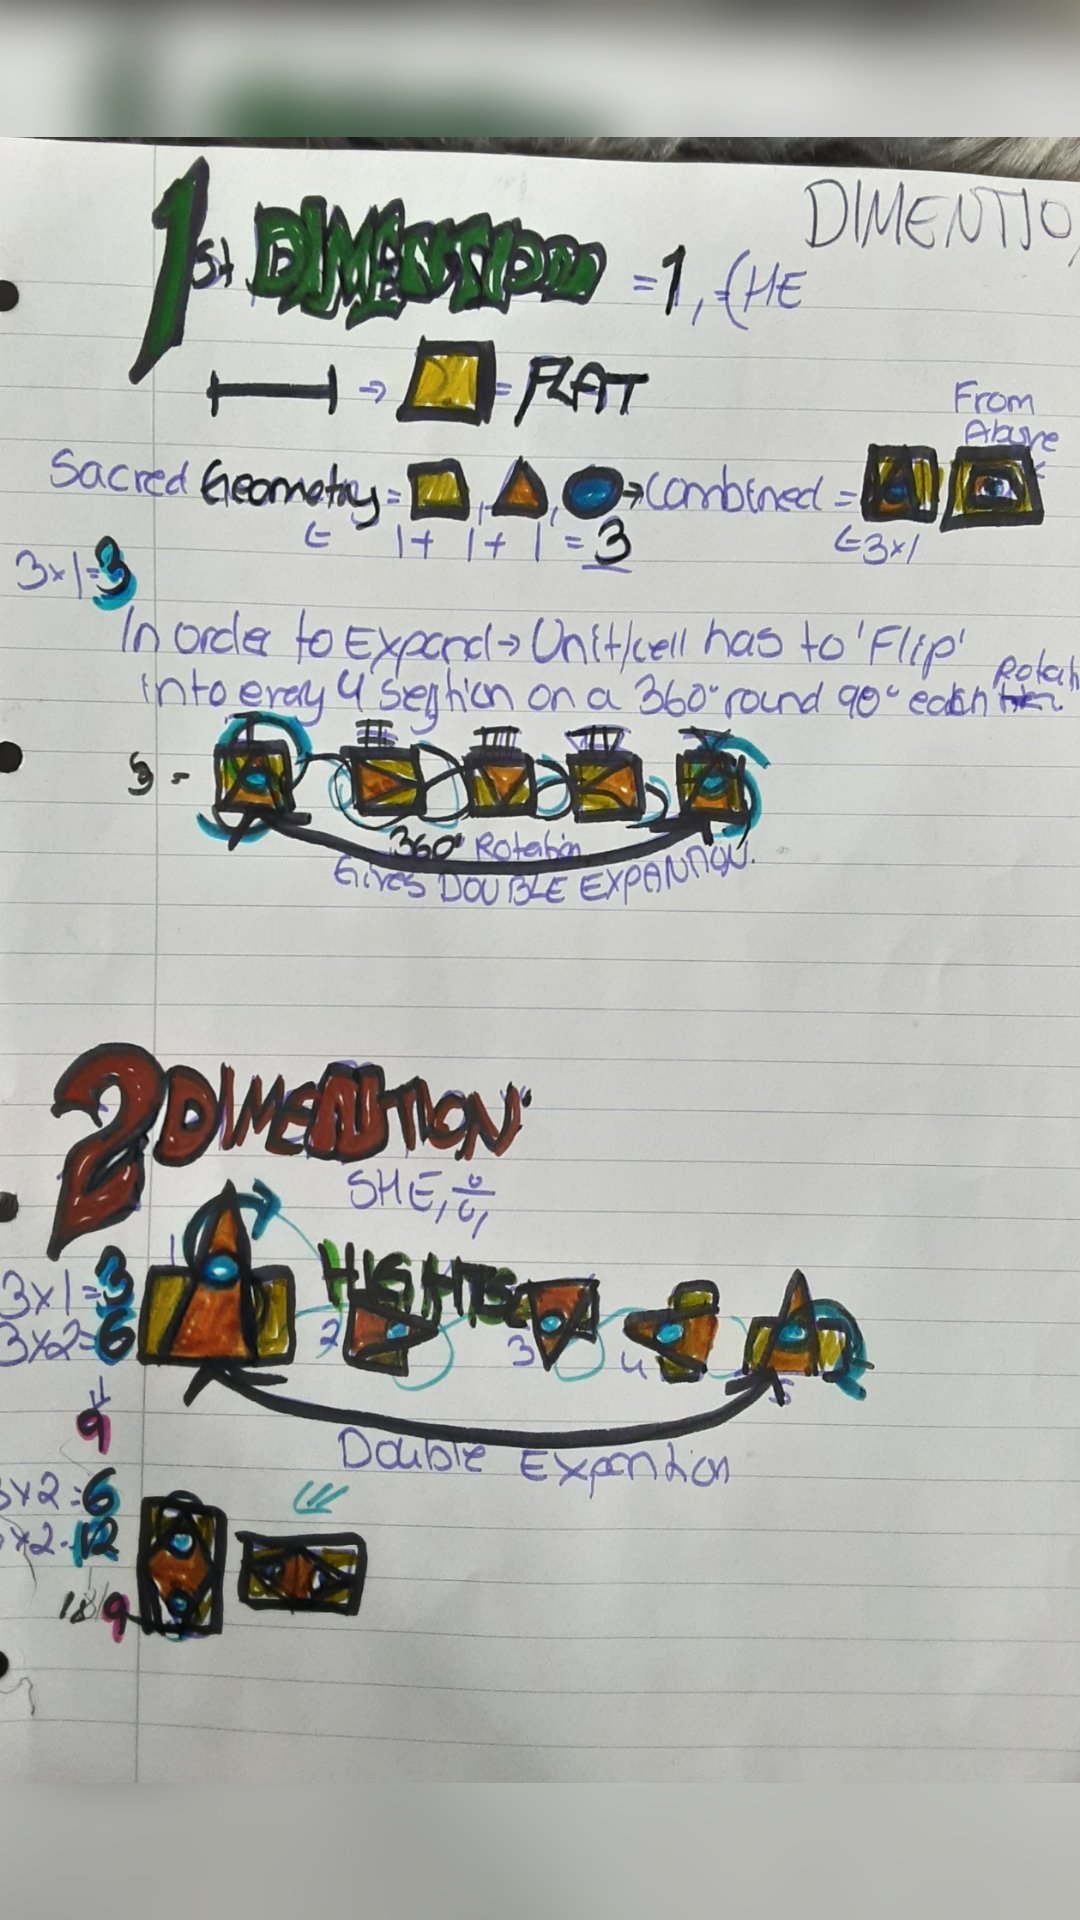 DIMENTIO
1st DIMENTION =1, (HE
→ = FLAT
From
Above
Sacred Geometry = , , → Combined =
1+ 1+ 1 = 3
3x1
3x1=3
In order to Expand → Unit/cell has to 'Flip'
into eray 4 seghion on a 360° round 90° each
Rotah
3 =
360° Rotation
Gives DOUBLE EXPANTION.
2 DIMENTION
SHE,
1
3x1=3
HIGHTS
3x2=6
2
3
4
5
9
Double Expantion
3x2=6
x2=12
18/9